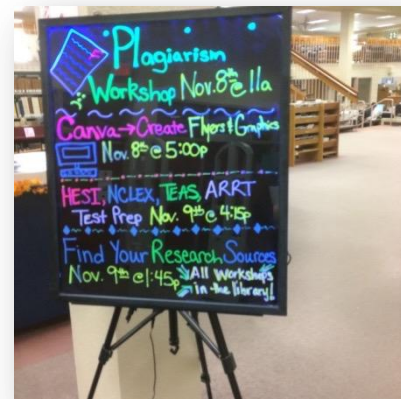 Plagiarism
Workshop Nov. 8th @ 11a
Canva→Create Flyers & Graphics
Nov. 8th @ 5:00p
HESI, NCLEX, TEAS, ARRT
Test Prep Nov. 9th @ 4:15p
Find Your Research Sources
Nov. 9th @ 1:45p
All Workshops
in the library!